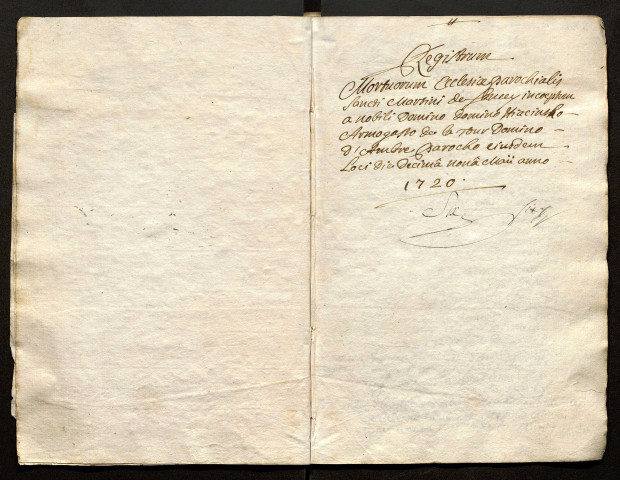 Registrum
Mortuorum Ecclesiæ parochialis
Sancti Martini de inceptum
a nobili Domino domino Hiacintho
Armogasto de la Tour Domino
D'Ambre Parocho eiusdem
Loci die Decimâ nonâ Maii anno
1720.